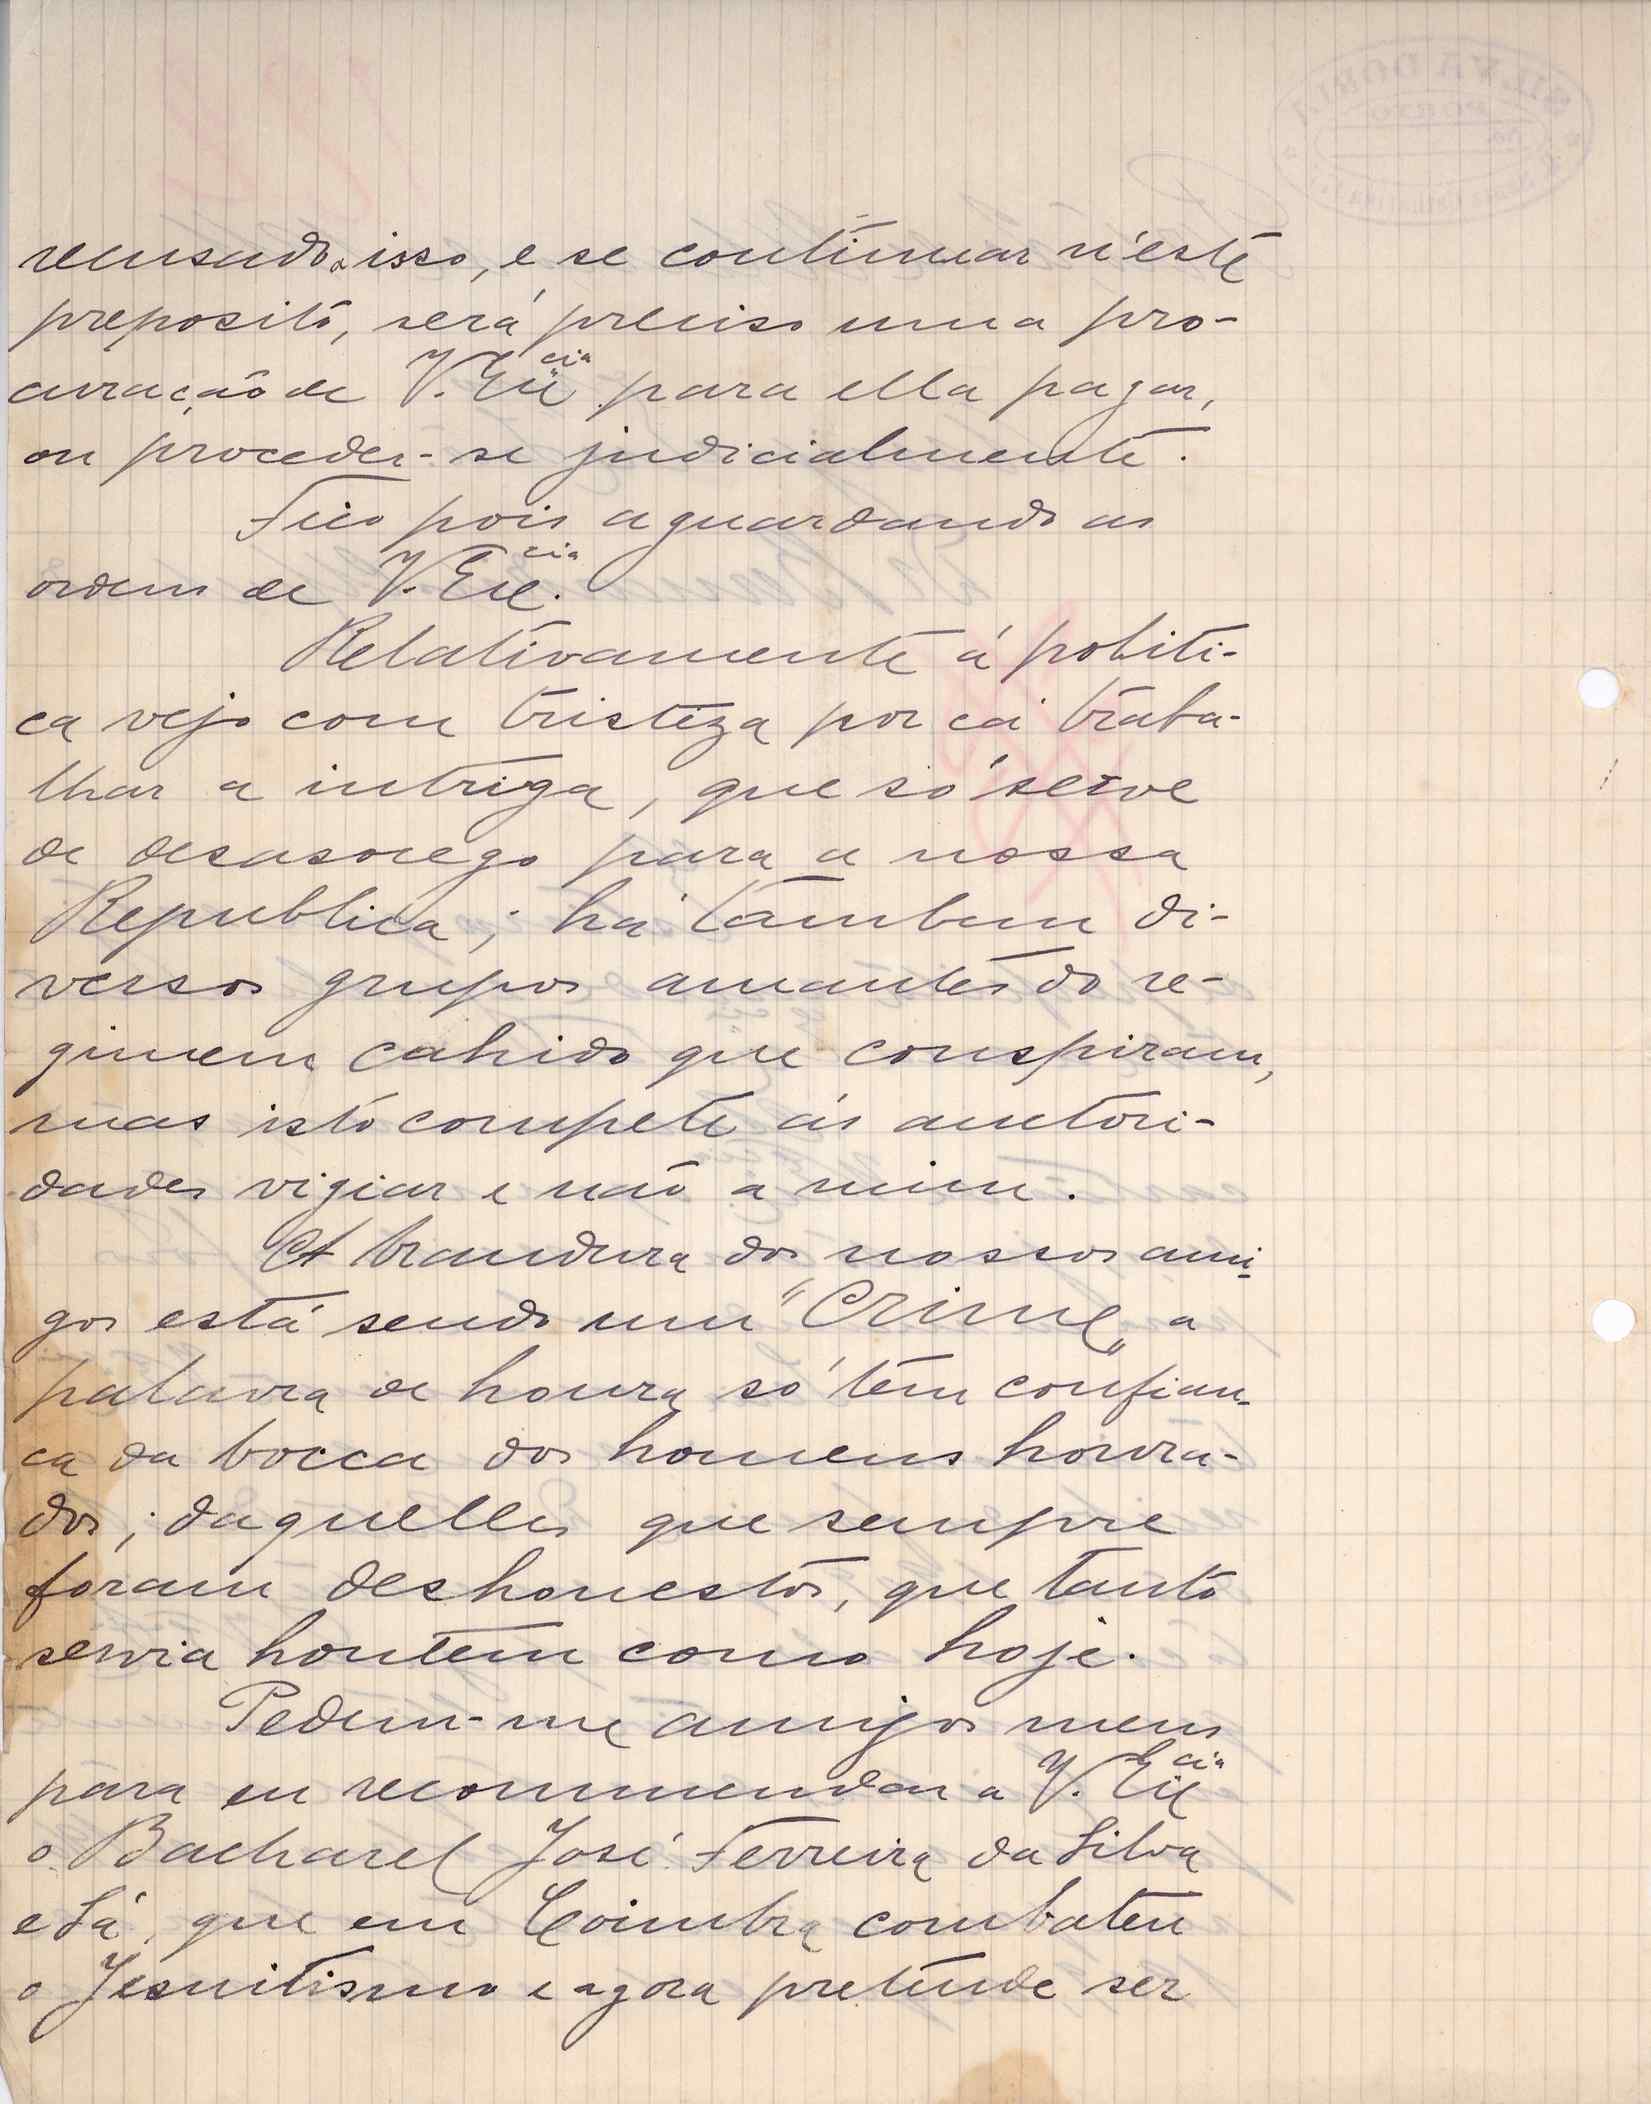 SILVA DORIA
PORTO
recusado a isso, e se continuar n'este
preposito, será preciso uma pro-
curação de V. Excia para ella pagar,
ou proceder-se judicialmente.
Fico pois aguardando as
ordens de V. Excia.
Relativamente á politi-
ca vejo com tristeza por cá traba-
lhar a intriga, que só serve
de desasocego para a nossa
Republica; há tambem di-
versos grupos amantes do re-
gimem cahido que conspiram,
mas isto compete ás auctori-
dades vigiar e não a mim.
A brandura dos nossos ami-
gos está sendo um "Crime" a
palavra de honra só tem confian-
ca da bocca dos homens honra-
dos; daquelles que sempre
foram deshonestos, que tanto
servia hontem como hoje.
Pedem-me amigos meus
para eu recommendar a V. Excia
o Bacharel José Ferreira da Silva
e Sá, que em Coimbra combateu
o Jesuitismo e agora pretende ser